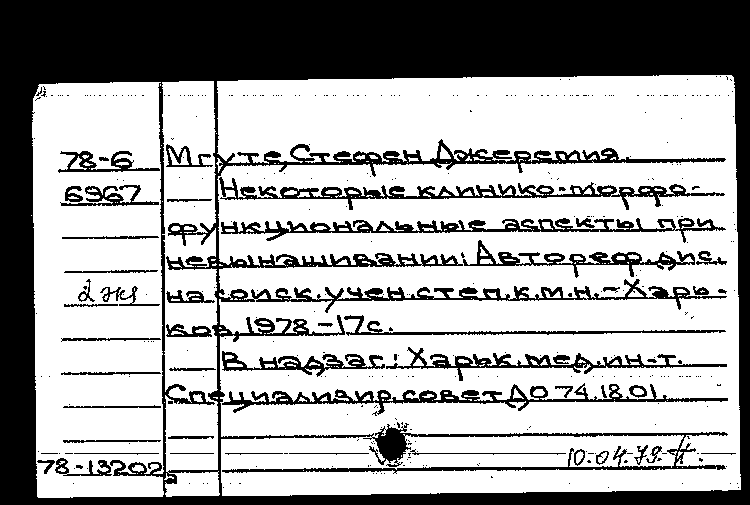 78-6 Мгуте, Стефен Джеремия.
6967 Некоторые клинико-морфо-
функциональные аспекты при
невынашивании: Автореф. дис.
2 экз на соиск. учен. степ. к.м.н. - Харь-
ков, 1978.-17с.
В надзаг.: Харьк. мед. ин-т.
Специализир. совет Д 074.18.01.
78-13202
10.04.79.